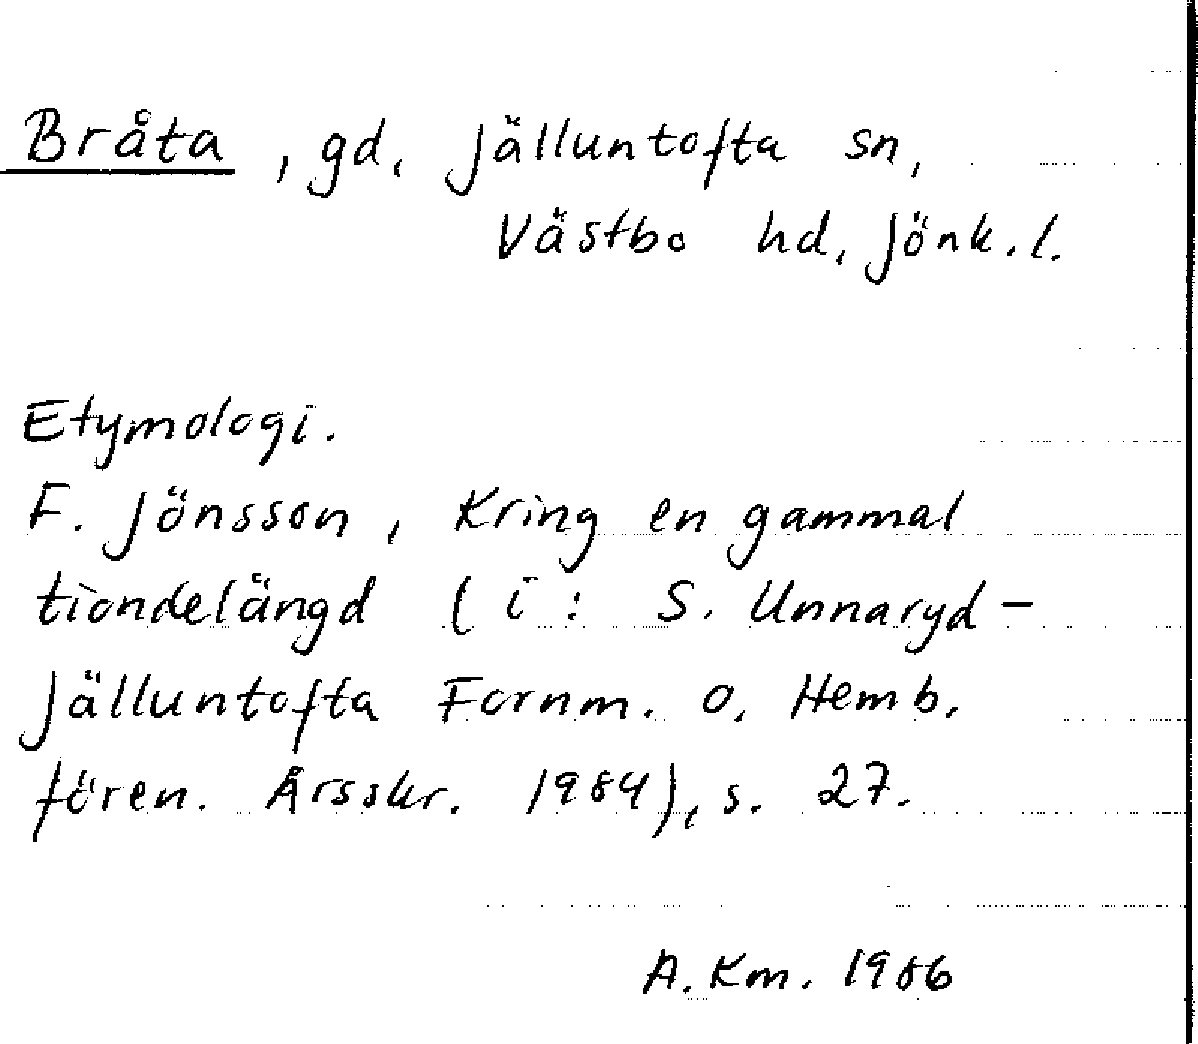 Bråta, gd, Jälluntofta sn,
Västbo hd, Jönk. l.
Etymologi.
F. Jönsson, Kring en gammal
tiondelängd (i: S. Unnaryd-
Jälluntofta Fornm. o. Hemb.
fören. Årsskr. 1984), s. 27.
A. Km. 1986